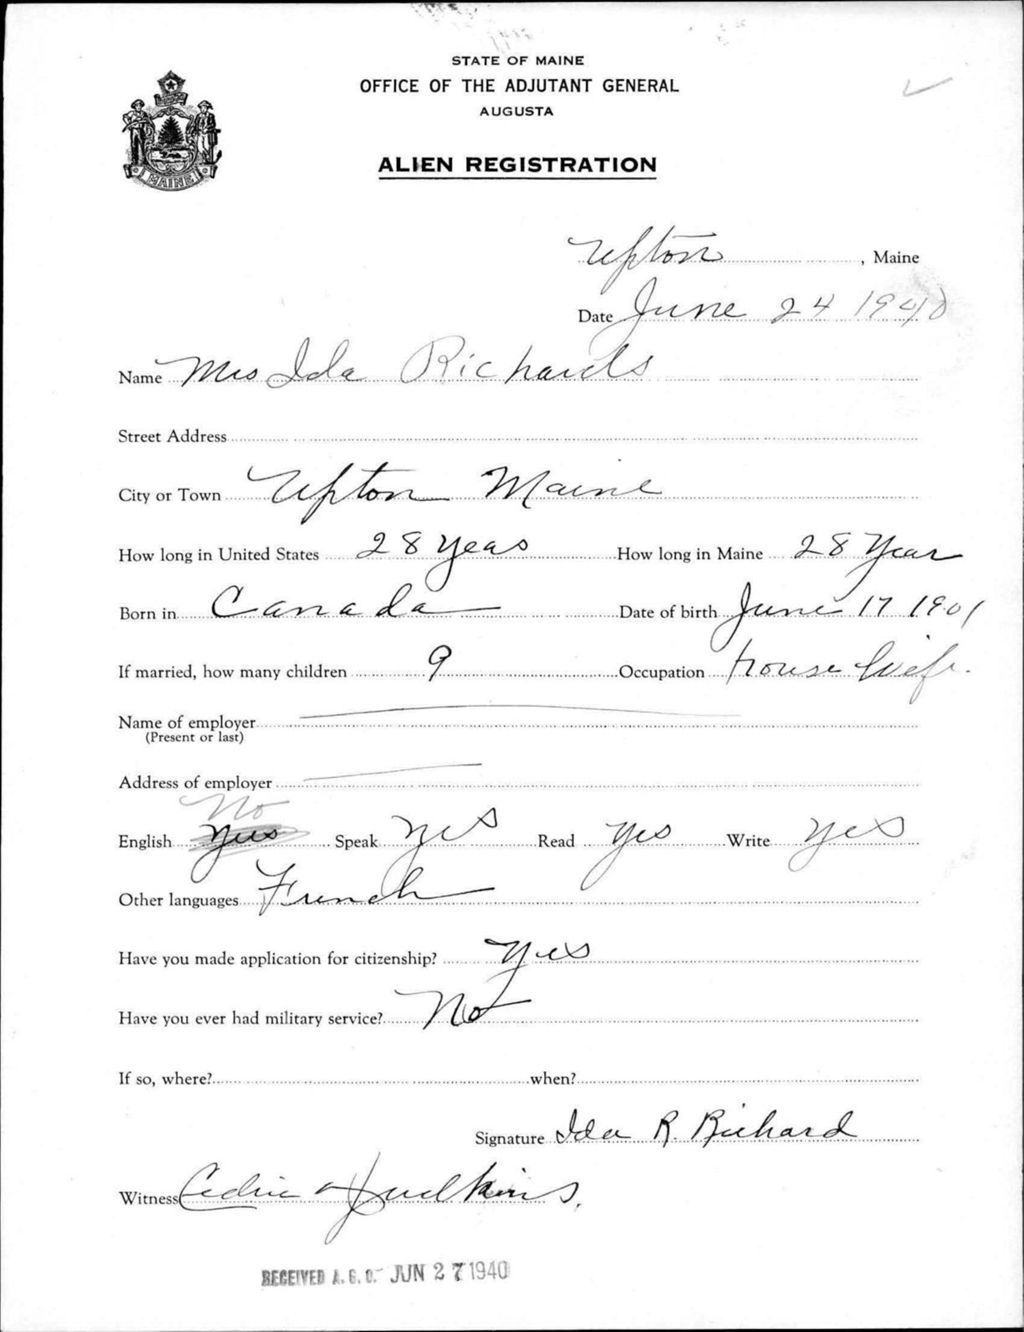 STATE OF MAINE
OFFICE OF THE ADJUTANT GENERAL
AUGUSTA
ALIEN REGISTRATION
MAINE
Upton, Maine
Date June 24 1940
Name Mrs Ida Richards
Street Address
City or Town Upton Maine
How long in United States 28 years How long in Maine 28 Year
Born in Canada Date of birth June 17 1901
If married, how many children 9 Occupation House Wife.
Name of employer
(Present or last)
Address of employer
No
English Yes Speak Yes Read Yes Write Yes
Other languages French
Have you made application for citizenship? Yes
Have you ever had military service? No
If so, where? when?
Signature Ida R. Richard
Witness Judkins
RECEIVED A.G.O. JUN 27 1940